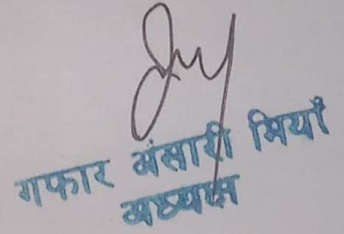 गफार अंसारी मियाँ
अध्यक्ष